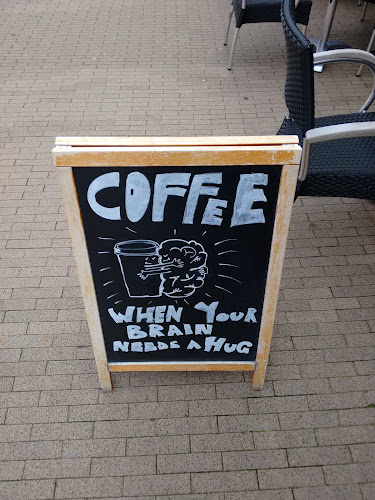 COFFEE
WHEN YOUR
BRAIN
NEEDS A HUG